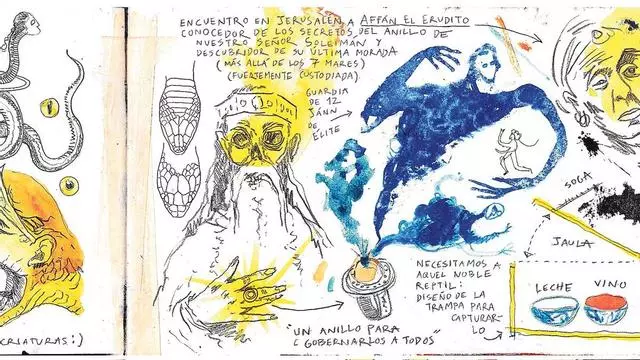 ENCUENTRO EN JERUSALÉN A AFFÁN EL ERUDITO
CONOCEDOR DE LOS SECRETOS DEL ANILLO DE
NUESTRO SEÑOR SOLEIMÁN Y
DESCUBRIDOR DE SU ÚLTIMA MORADA
(MÁS ALLÁ DE LOS 7 MARES)
(FUERTEMENTE CUSTODIADA)
GUARDIA
DE 12
JÁNN
DE
ÉLITE
SOGA
JAULA
NECESITAMOS A
AQUEL NOBLE
REPTIL:
DISEÑO DE LA
TRAMPA PARA
CAPTURAR-
LO
LECHE VINO
"UN ANILLO PARA
GOBERNARLOS A TODOS"
CRIATURAS:)